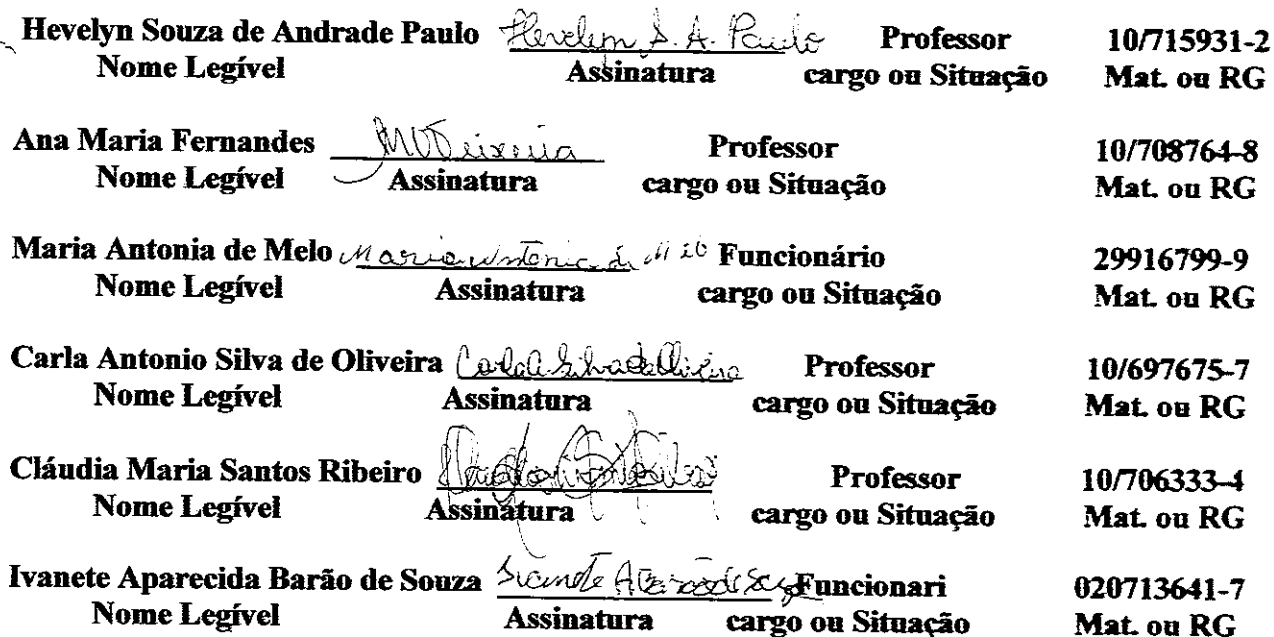 Hevelyn Souza de Andrade Paulo Hevelyn S. A. Paulo Professor 10/715931-2
Nome Legível Assinatura cargo ou Situação Mat. ou RG
Ana Maria Fernandes Professor 10/708764-8
Nome Legível Assinatura cargo ou Situação Mat. ou RG
Maria Antonia de Melo Maria Antonia de Melo Funcionário 29916799-9
Nome Legível Assinatura cargo ou Situação Mat. ou RG
Carla Antonio Silva de Oliveira Carla A. Silva de Oliveira Professor 10/697675-7
Nome Legível Assinatura cargo ou Situação Mat. ou RG
Cláudia Maria Santos Ribeiro Professor 10/706333-4
Nome Legível Assinatura cargo ou Situação Mat. ou RG
Ivanete Aparecida Barão de Souza Ivanete A Barão de Souza Funcionari 020713641-7
Nome Legível Assinatura cargo ou Situação Mat. ou RG